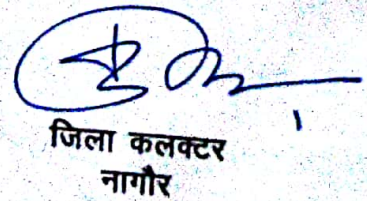 जिला कलक्टर
नागौर